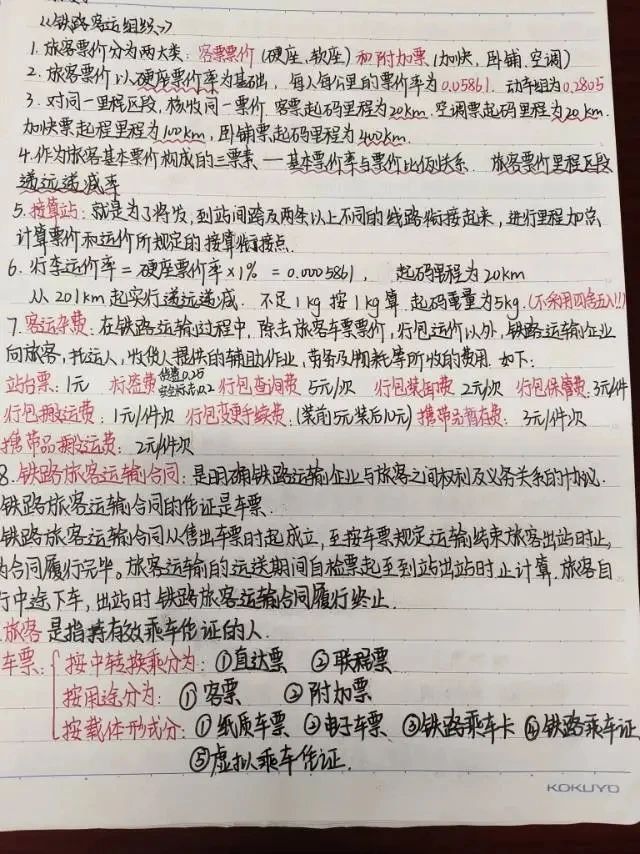 《铁路客运组织》
1. 旅客票价分为两大类：客票票价（硬座、软座）和附加票（加快、卧铺、空调）
2. 旅客票价以硬座票价率为基础，每人每公里的票价率为0.05861. 动车组为0.2805
3. 对同一里程区段，核收同一票价 客票起码里程为20km. 空调票起码里程为20km.
加快票起程里程为100km，卧铺票起码里程为400km.
4. 作为旅客基本票价构成的三要素 — 基本票价率与票价比例关系 旅客票价里程区段
递远递减率
5. 接算站：就是为了将发，到站间跨及两条以上不同的线路衔接起来，进行里程加总
计算票价和运价所规定的接算衔接点.
6. 行李运价率 = 硬座票价率×1% = 0.0005861， 起码里程为20km
从201km起实行递远递减. 不足1kg按1kg算 起码重量为5kg.（不采用四舍五入!!!）
7. 客运杂费：在铁路运输过程中，除去旅客车票票价，行包运价以外，铁路运输企业
向旅客，托运人，收货人提供的辅助作业，劳务及物耗等所收的费用. 如下：
站台票：1元 标签费 货签0.25 安全标志0.2 行包查询费 5元/次 行包装卸费 2元/次 行包保管费：3元/件
行包搬运费：1元/件次 行包变更手续费：（装前5元装后10元）携带品暂存费：3元/件次
携带品搬运费：2元/件次
8. 铁路旅客运输合同：是明确铁路运输企业与旅客之间权利及义务关系的协议.
铁路旅客运输合同的凭证是车票.
铁路旅客运输合同从售出车票时起成立，至按车票规定运输结束旅客出站时止，
为合同履行完毕。旅客运输的运送期间自检票起至到站出站时止计算. 旅客自
行中途下车，出站时 铁路旅客运输合同履行终止.
旅客 是指持有效乘车凭证的人.
车票：按中转换乘分为：①直达票 ②联程票
按用途分为：①客票 ②附加票
按载体形式分：①纸质车票 ②电子车票 ③铁路乘车卡 ④铁路乘车证
⑤虚拟乘车凭证.
KOKUYO